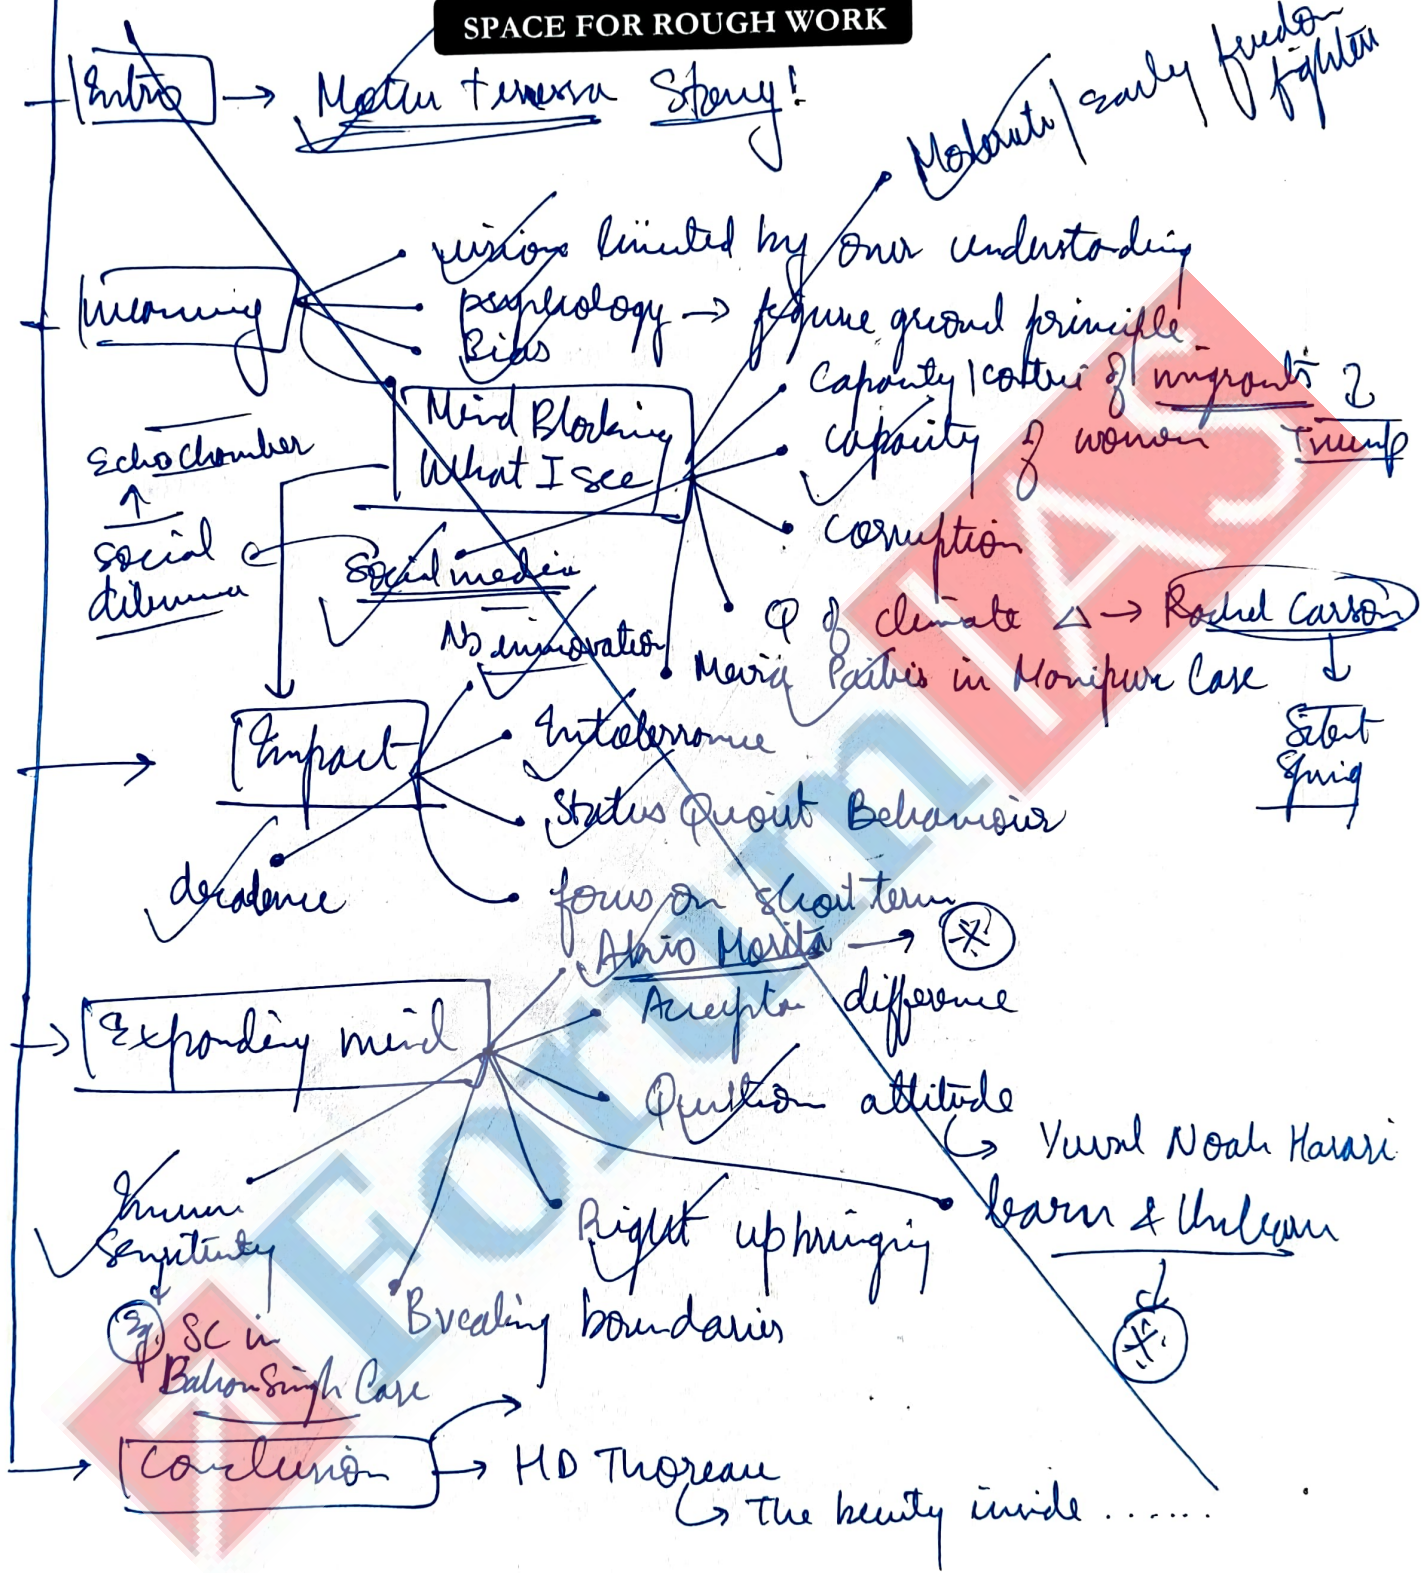 SPACE FOR ROUGH WORK
Intro → Mother Teressa Story!
Moderate / Early freedom
fighters
Meaning
vision limited by ones understanding
psychology → figure ground principle
Bias
Mind Blocking
What I see
Capacity / of migrants
Trump
Capacity of women
Corruption
Q of climate Δ → Rachel Carson
Silent
Spring
Paibis in Manipur Case
Social media
Social
dilemma
Echo Chamber
Impact
No innovation
Intolerance
Status Quoist Behaviour
focus on short term
decadence
Expanding mind
Akio Morita →
Accepta difference
Question attitude
Yuval Noah Harari
learn & Unlearn
Right upbringing
Breaking boundaries
Sensitivity
Eg. SC in
Singh Case
Conclusion → HD Thoreau
The beauty inside ......
Forum IAS